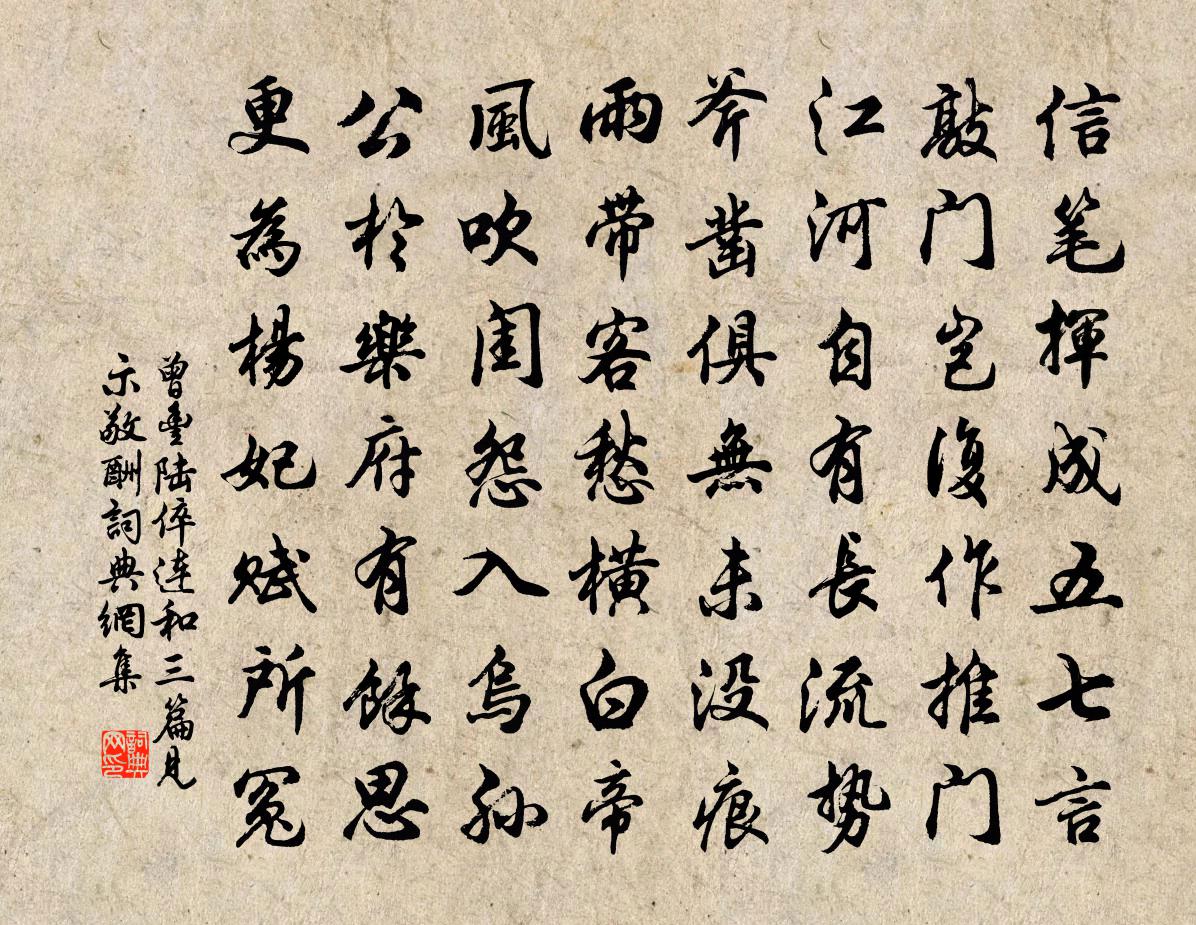 信笔揮成五七言
敲门岂復作推门
江河自有長流势
斧凿俱無未没痕
雨带客愁横白帝
風吹闺怨入烏孙
公於樂府有餘思
更為楊妃赋所冤
曾豊陆倅连和三篇見
示敬酬詞典網集
詞典
网印